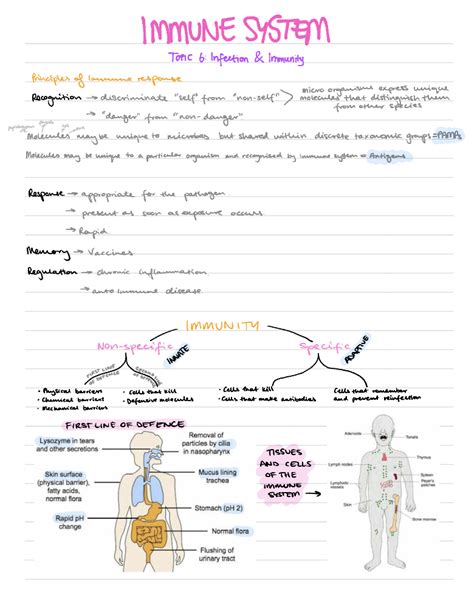 IMMUNE SYSTEM
Topic 6: Infection & Immunity
Principles of immune response
Recognition → discriminate "self" from "non-self"
micro organisms express unique
molecules that distinguish them
from other species
→ "danger" from "non-danger"
Molecules may be unique to microbes but shared within discrete taxonomic groups = PAMPs
Molecules may be unique to a particular organism and recognised by immune system = Antigens
Response → appropriate for the pathogen
→ present as soon as exposure occurs
→ Rapid
Memory → Vaccines
Regulation → chronic inflammation
→ autoimmune disease
IMMUNITY
Non-specific
INNATE
Specific
ADAPTIVE
FIRST LINE OF DEFENCE
SECOND LINE OF DEFENCE
• Physical barriers
• Chemical barriers
• Mechanical barriers
• Cells that kill
• Defensive molecules
• Cells that kill
• Cells that make antibodies
Cells that remember
and prevent reinfection
FIRST LINE OF DEFENCE
Lysozyme in tears
and other secretions
Skin surface
(physical barrier),
fatty acids,
normal flora
Rapid pH
change
Removal of
particles by cilia
in nasopharynx
Mucus lining
trachea
Stomach (pH 2)
Normal flora
Flushing of
urinary tract
TISSUES
AND CELLS
OF THE
IMMUNE
SYSTEM →
Adenoids
Tonsils
Lymph nodes
Thymus
Lymphatic
vessels
Spleen
Peyer's
patches
Skin
Bone marrow